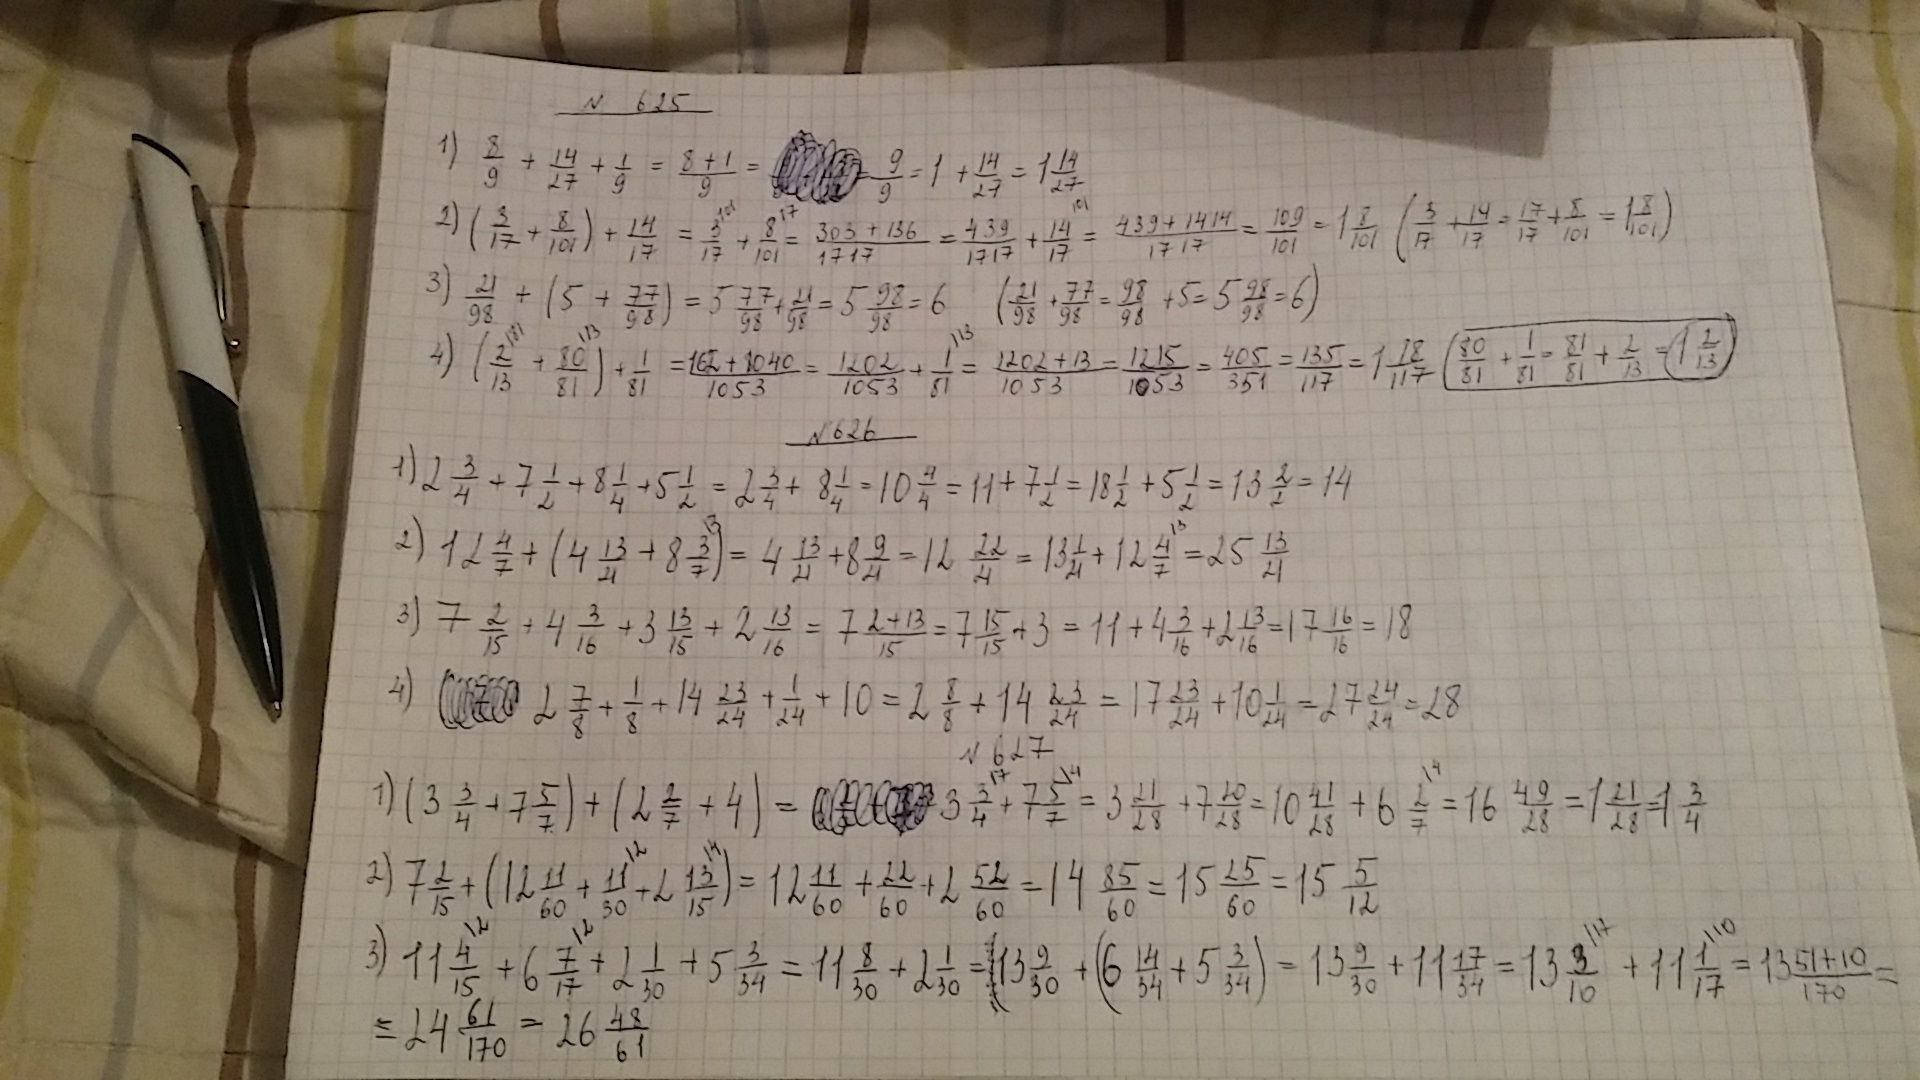 N 625
1) 8/9 + 14/27 + 1/9 = 8+1/9 = = 9/9 = 1 + 14/27 = 1 14/27
2) (3/17 + 8/101) + 14/17 = 3/17 \101 + 8/101 \17 = 303+136/1717 = 439/1717 + 14/17 \101 = 439+1414/1717 = 109/101 = 1 8/101 (3/17 + 14/17 = 17/17 + 8/101 = 1 8/101)
3) 21/98 + (5 + 77/98) = 5 77/98 + 21/98 = 5 98/98 = 6 (21/98 + 77/98 = 98/98 + 5 = 5 98/98 = 6)
4) (2/13 \81 + 80/81 \13) + 1/81 = 162+1040/1053 = 1202/1053 + 1/81 \13 = 1202+13/1053 = 1215/1053 = 405/351 = 135/117 = 1 18/117 (80/81 + 1/81 = 81/81 + 2/13 = 1 2/13)
N 626
1) 2 3/4 + 7 1/2 + 8 1/4 + 5 1/2 = 2 3/4 + 8 1/4 = 10 4/4 = 11 + 7 1/2 = 18 1/2 + 5 1/2 = 13 2/2 = 14
2) 12 4/7 + (4 13/21 + 8 3/7 \3) = 4 13/21 + 8 9/21 = 12 22/21 = 13 1/21 + 12 4/7 \3 = 25 13/21
3) 7 2/15 + 4 3/16 + 3 13/15 + 2 13/16 = 7 2+13/15 = 7 15/15 + 3 = 11 + 4 3/16 + 2 13/16 = 17 16/16 = 18
4) 2 7/8 + 1/8 + 14 23/24 + 1/24 + 10 = 2 8/8 + 14 23/24 = 17 23/24 + 10 1/24 = 27 24/24 = 28
N 627
1) (3 3/4 + 7 5/7) + (2 2/7 + 4) = 3 3/4 \7 + 7 5/7 \4 = 3 21/28 + 7 20/28 = 10 41/28 + 6 2/7 \4 = 16 49/28 = 1 21/28 = 1 3/4
2) 7 2/15 + (12 11/60 + 11/30 \2 + 2 13/15 \4) = 12 11/60 + 22/60 + 2 52/60 = 14 85/60 = 15 25/60 = 15 5/12
3) 11 4/15 \2 + 6 7/17 \2 + 2 1/30 + 5 3/34 = 11 8/30 + 2 1/30 = 13 9/30 + (6 14/34 + 5 3/34) = 13 9/30 + 11 17/34 = 13 3/10 \17 + 11 1/17 \10 = 13 51+10/170 =
= 24 61/170 = 26 48/61